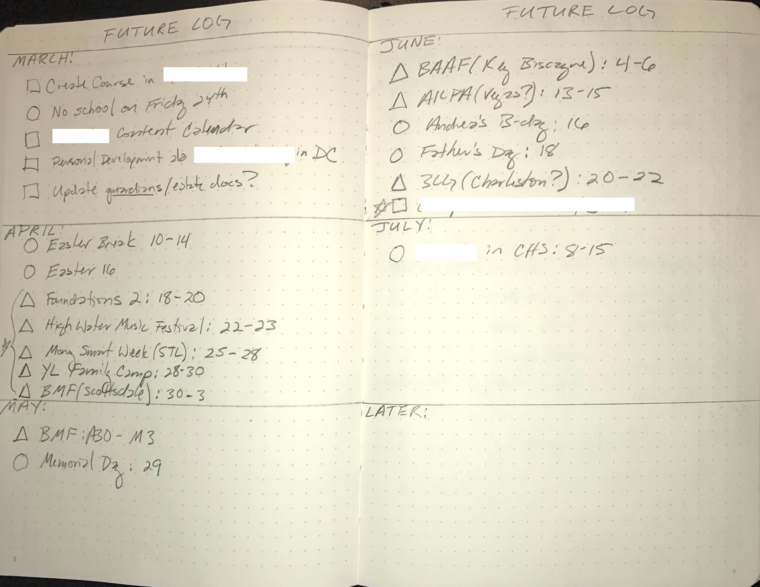 FUTURE LOG
MARCH:
Create Course in
No school on Friday 24th
Content Calendar
Personal Development in DC
Update guardians/estate docs?
APRIL:
Easter Break 10-14
Easter 16
Foundations 2: 18-20
High Water Music Festival: 22-23
Money Smart Week (STL): 25-28
YL Family Camp: 28-30
BMF (Scottsdale): 30-3
MAY:
BMF: A30-M3
Memorial Day: 29
FUTURE LOG
JUNE:
BAAF (Key Biscayne): 4-6
AICPA (Vegas?): 13-15
Andrea's B-day: 16
Father's Day: 18
(Charleston?): 20-22
JULY:
in CHS: 8-15
LATER: